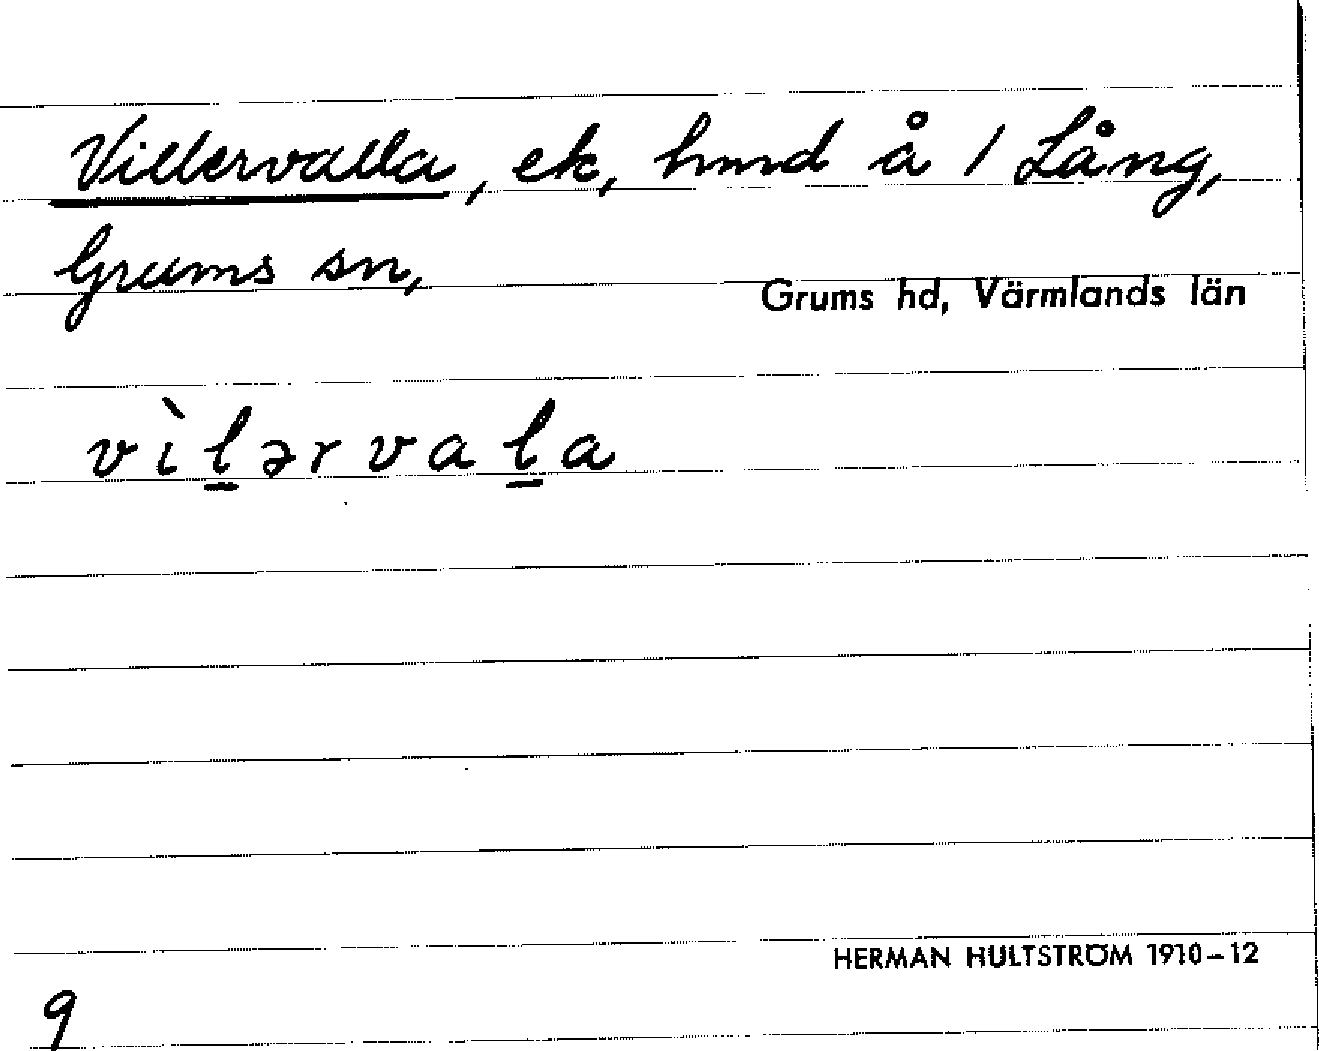 Villervalla, ek, hmd å 1 Lång,
Grums sn,
Grums hd, Värmlands län
vìl̲ərval̲a
HERMAN HULTSTRÖM 1910–12
9